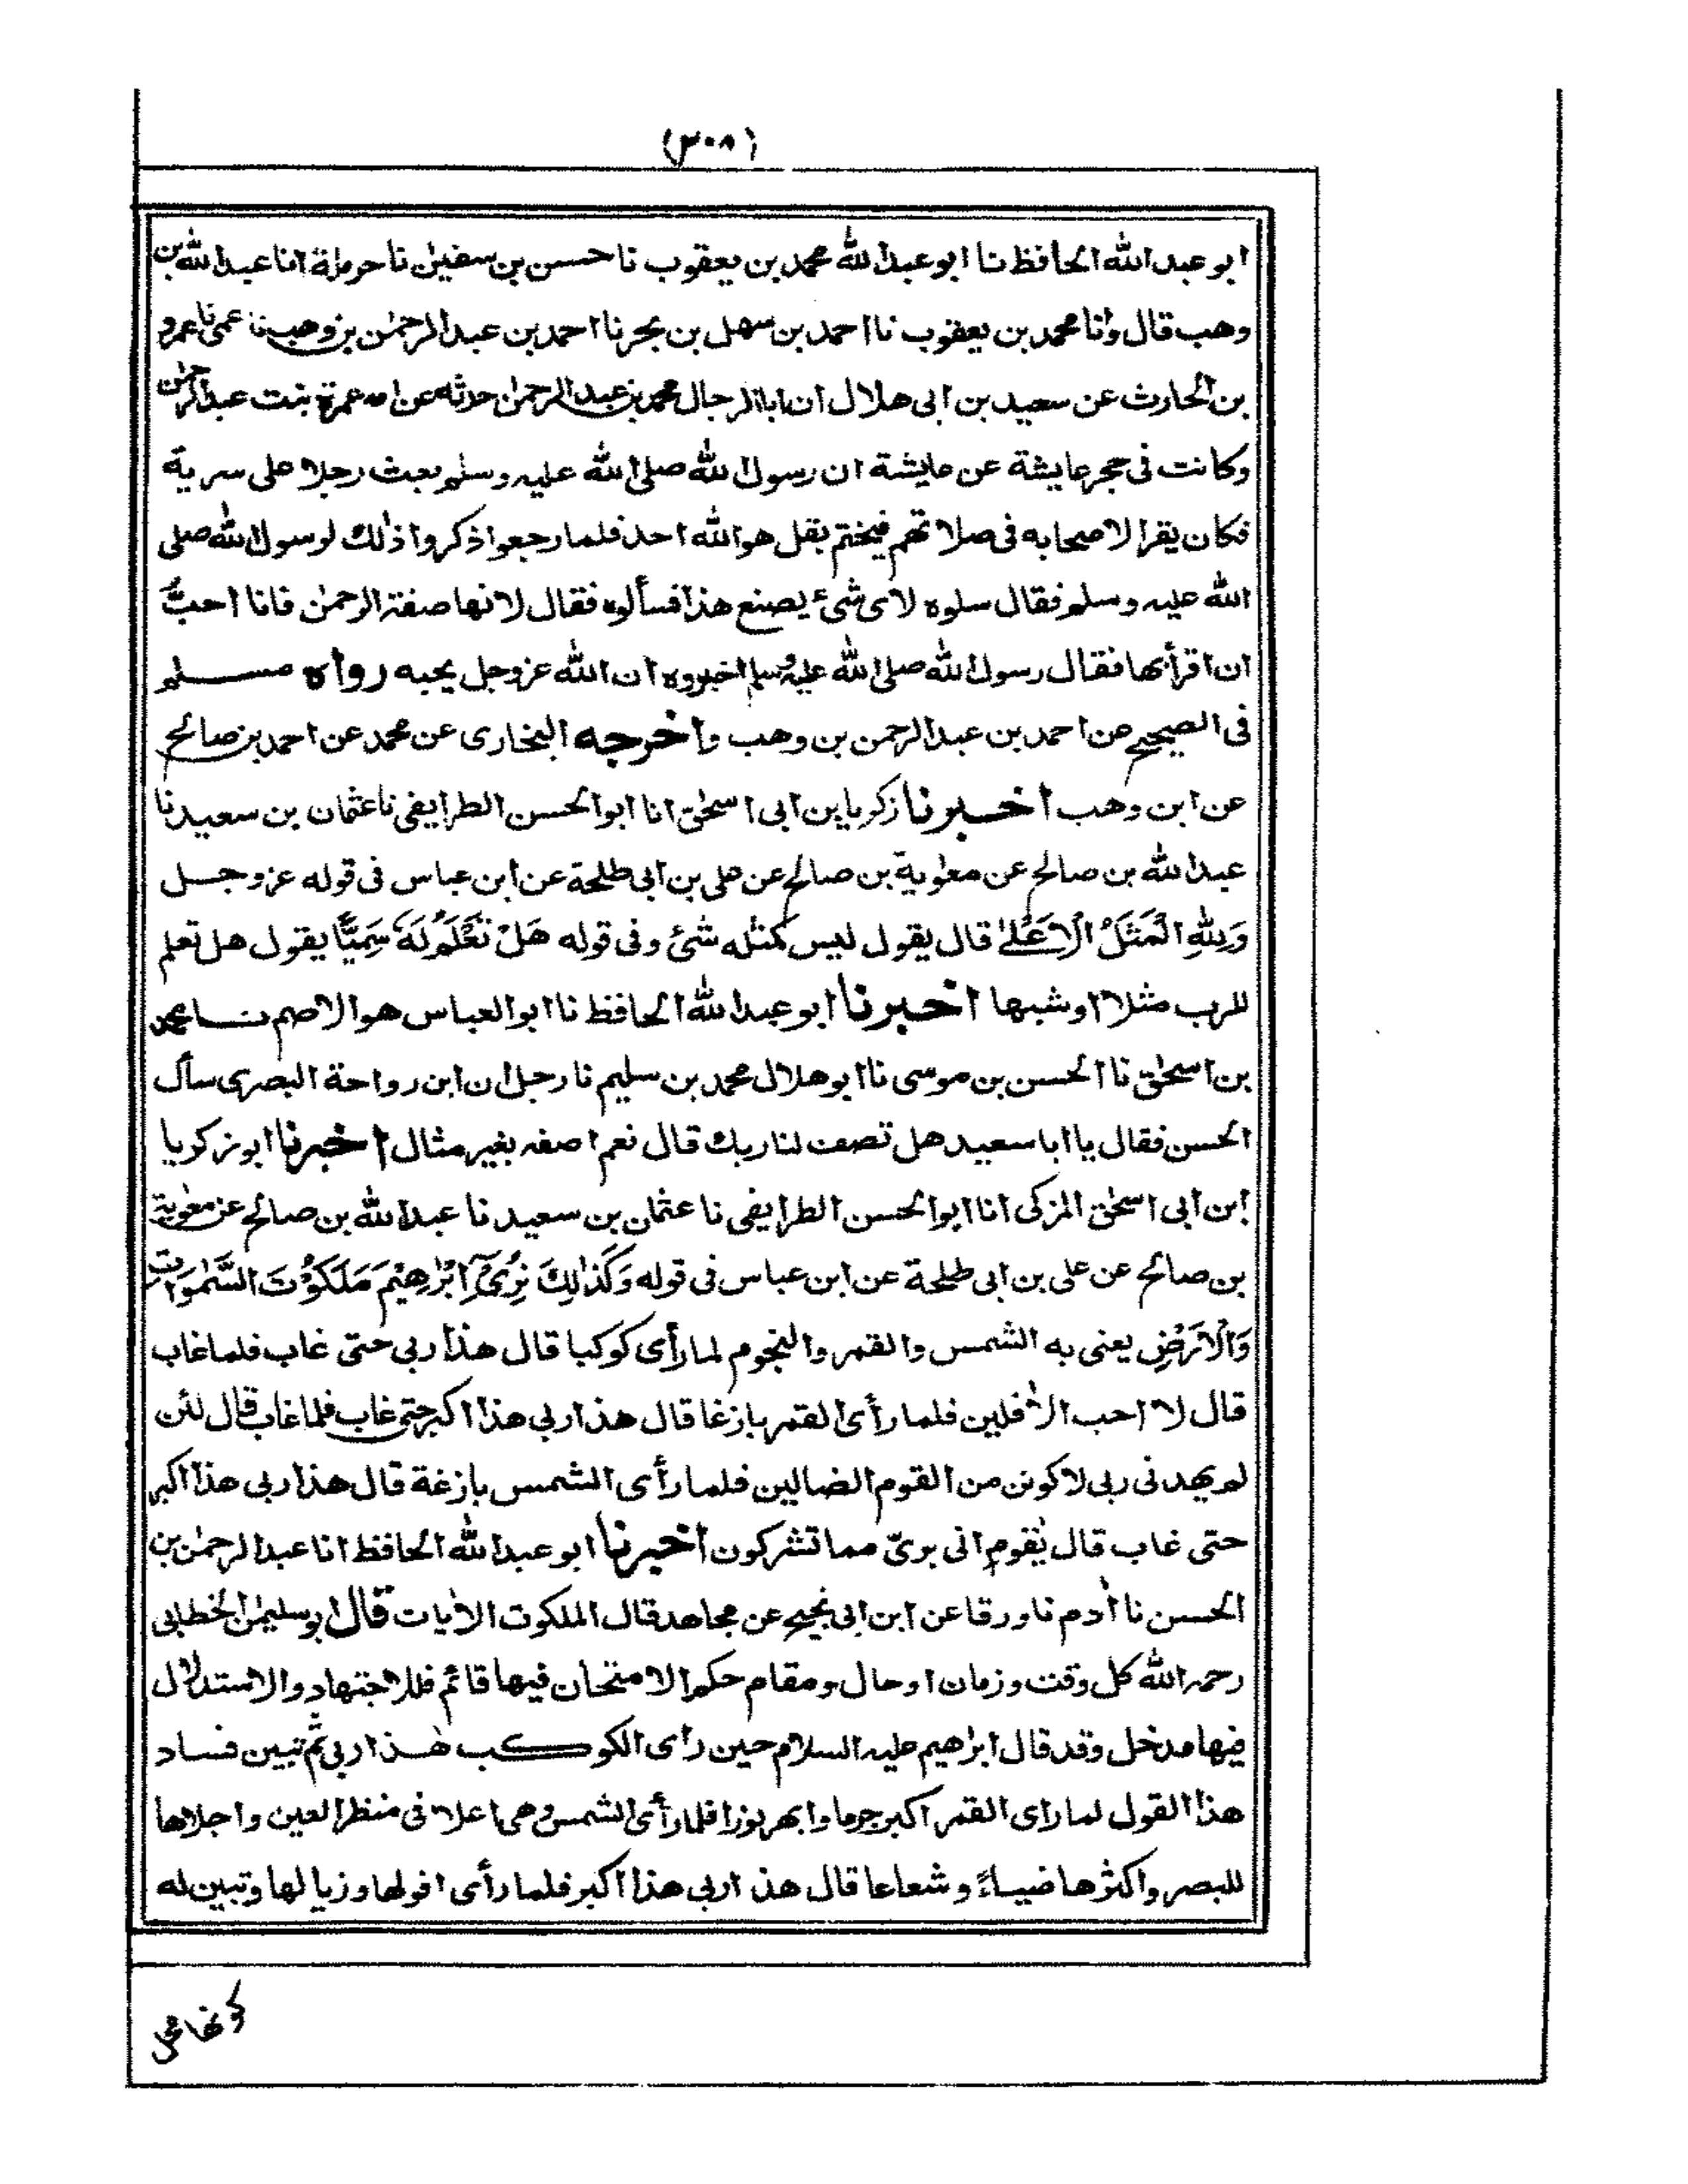 (٣٠٨)
ابو عبد الله الحافظ نا ابو عبد الله محمد بن يعقوب نا حسن بن سفين نا حرملة انا عبد الله بن
وهب قال وانا محمد بن يعقوب نا احمد بن سهل بن بحر نا احمد بن عبد الرحمن بن وهب نا عمى نا عمرو
بن الحارث عن سعيد بن ابى هلال ان ابا الرجال محمد بن عبد الرحمن حدثه عن امه عمرة بنت عبد الرحمن
وكانت فى حجر عايشة عن عايشة ان رسول الله صلى الله عليه وسلم بعث رجلا على سرية
فكان يقرا لاصحابه فى صلاتهم فيختم بقل هو الله احد فلما رجعوا ذكروا ذلك لرسول الله صلى
الله عليه وسلم فقال سلوه لاى شئ يصنع هذا فسألوه فقال لانها صفة الرحمن فانا احبُّ
ان اقرأ بها فقال رسول الله صلى الله عليه وسلم اخبروه ان الله عز وجل يحبه رواه مسلم
فى الصحيح عن احمد بن عبد الرحمن بن وهب واخرجه البخارى عن محمد عن احمد بن صالح
عن ابن وهب اخبرنا زكريا بن ابى اسحق انا ابو الحسن الطرايفى نا عثمان بن سعيد نا
عبد الله بن صالح عن معوية بن صالح عن على بن ابى طلحة عن ابن عباس فى قوله عز وجل
وَلِلهِ الْمَثَلُ الْاَعْلٰى قال يقول ليس كمثله شئ وفى قوله هَلْ تَعْلَمُ لَهٗ سَمِيًّا يقول هل تعلم
للرب مثلا او شبها اخبرنا ابو عبد الله الحافظ نا ابو العباس هو الاصم نا محمد
بن اسحق نا الحسن بن موسى نا ابو هلال محمد بن سليم نا رجل ان ابن رواحة البصرى سأل
الحسن فقال يا ابا سعيد هل تصف لنا ربك قال نعم اصفه بغير مثال اخبرنا ابو زكريا
ابن ابى اسحق المزكى انا ابو الحسن الطرايفى نا عثمان بن سعيد نا عبد الله بن صالح عن معوية
بن صالح عن على بن ابى طلحة عن ابن عباس فى قوله وَكَذٰلِكَ نُرِىْٓ اِبْرٰهِيْمَ مَلَكُوْتَ السَّمٰوَاتِ
وَالْاَرْضِ يعنى به الشمس والقمر والنجوم لما رأى كوكبا قال هذا ربى حتى غاب فلما غاب
قال لا احب الأفلين فلما رأى القمر بازغا قال هذا ربى هذا اكبر حتى غاب فلما غاب قال لئن
لم يهدنى ربى لاكونن من القوم الضالين فلما رأى الشمس بازغة قال هذا ربى هذا اكبر
حتى غاب قال يٰقوم انى برئ مما تشركون اخبرنا ابو عبد الله الحافظ انا عبد الرحمن بن
الحسن نا أدم نا ورقا عن ابن ابى نجيح عن مجاهد قال الملكوت الأيات قال ابو سليمن الخطابى
رحمه الله كل وقت وزمان او حال ومقام حكم الامتحان فيها قائم فللاجتهاد والاستدلال
فيها مدخل وقد قال ابرهيم عليه السلام حين رأى الكوكب هذا ربى ثم تبين فساد
هذا القول لما راى القمر اكبر جرما وابهر نورا فلما رأى الشمس وهى اعلا فى منظر العين واجلاها
للبصر واكثرها ضياءً وشعاعا قال هذا ربى هذا اكبر فلما رأى افولها وزيالها وتبين له
كونها محل